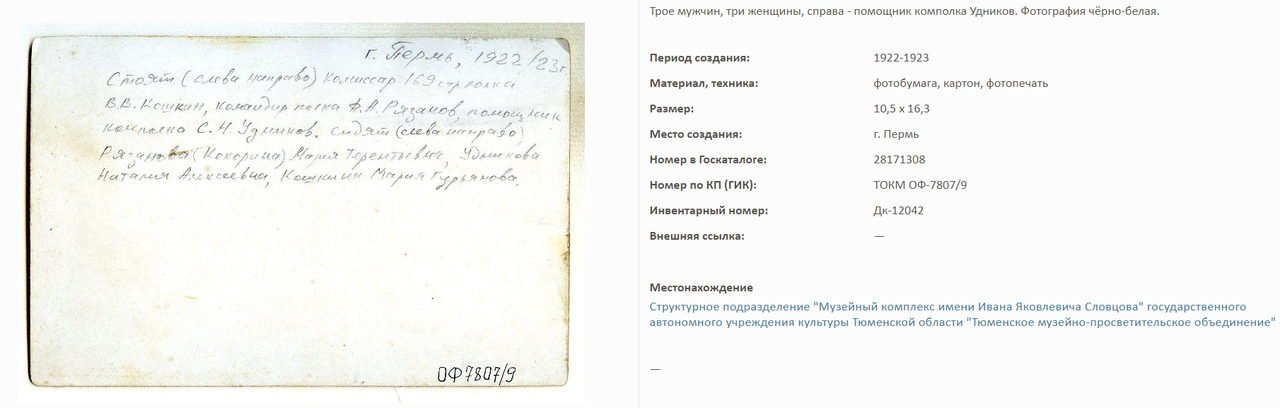 г. Пермь, 1922/23г.
Стоят (слева направо) комиссар 169 стрполка
В.В. Кошкин, командир полка Ф.А. Рязанов, помощник
комполка С.Н. Удников. сидят (слева направо)
Рязанова (Кокорина) Мария Терентьевна, Удникова
Наталия Алексеевна, Кошкина Мария Гурьяновa.
ОФ7807/9
Трое мужчин, три женщины, справа - помощник комполка Удников. Фотография чёрно-белая.
Период создания: 1922-1923
Материал, техника: фотобумага, картон, фотопечать
Размер: 10,5 х 16,3
Место создания: г. Пермь
Номер в Госкаталоге: 28171308
Номер по КП (ГИК): ТОКМ ОФ-7807/9
Инвентарный номер: Дк-12042
Внешняя ссылка: —
Местонахождение
Структурное подразделение "Музейный комплекс имени Ивана Яковлевича Словцова" государственного
автономного учреждения культуры Тюменской области "Тюменское музейно-просветительское объединение"
—